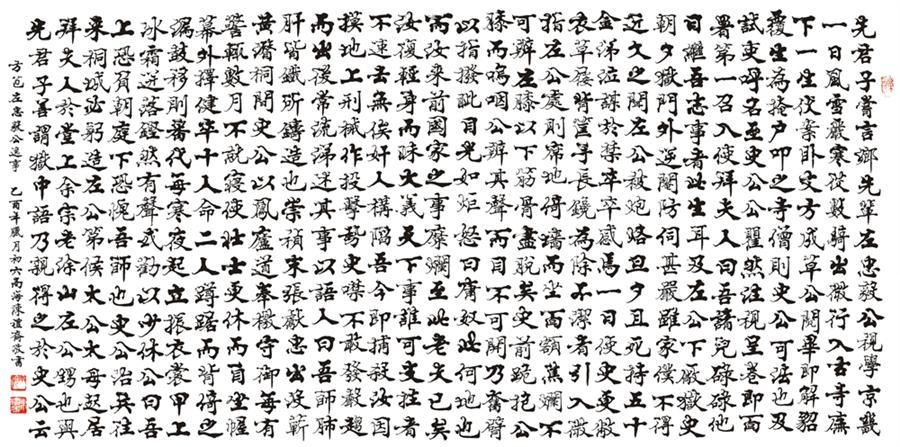 先君子嘗言鄉先輩左忠毅公視學京畿
一日風雪嚴寒從數騎出微行入古寺廡
下一生伏案臥文方成草公閱畢即解貂
覆生為掩戶叩之寺僧則史公可法也及
試吏呼名至史公瞿然注視呈卷即面
署第一召入使拜夫人曰吾諸兒碌碌他
日繼吾志事者此生耳及左公下廠獄史
朝夕獄門外逆閹防伺甚嚴雖家僕不得
近久之聞左公被炮烙旦夕且死持五十
金涕泣謀於禁卒卒感焉一日使史更敝
衣草屨背筐手長鑱為除不潔者引入微
指左公處則席地倚牆而坐面額焦爛不
可辨左膝以下筋骨盡脫矣史前跪抱公
膝而嗚咽公辨其聲而目不可開乃奮臂
以指撥眥目光如炬怒曰庸奴此何地也
而汝來前國家之事糜爛至此老夫已矣
汝復輕身而昧大義天下事誰可支拄者
不速去無俟奸人構陷吾今即捕殺汝因
摸地上刑械作投擊勢史噤不敢發聲趨
而出後常流涕述其事以語人曰吾師肺
肝皆鐵所鑄造也崇禎末張獻忠出沒蘄
黃潛桐間史公以鳳廬道奉檄守禦每有
警輒數月不就寢使壯士更休而自坐幄
幕外擇健卒十人命二人蹲踞而背倚之
漏鼓移則番代每寒夜起立振衣裳甲上
冰霜迸落鏗然有聲或勸以少休公曰吾
上恐負朝廷下恐愧吾師也史公治兵往
來桐城必躬造左公第候太公太母起居
拜夫人於堂上余宗老塗山左公甥也與
先君子善謂獄中語乃親得之於史公云
方苞左忠毅公逸事 乙酉年臘月初六 海陳禮齋敬書